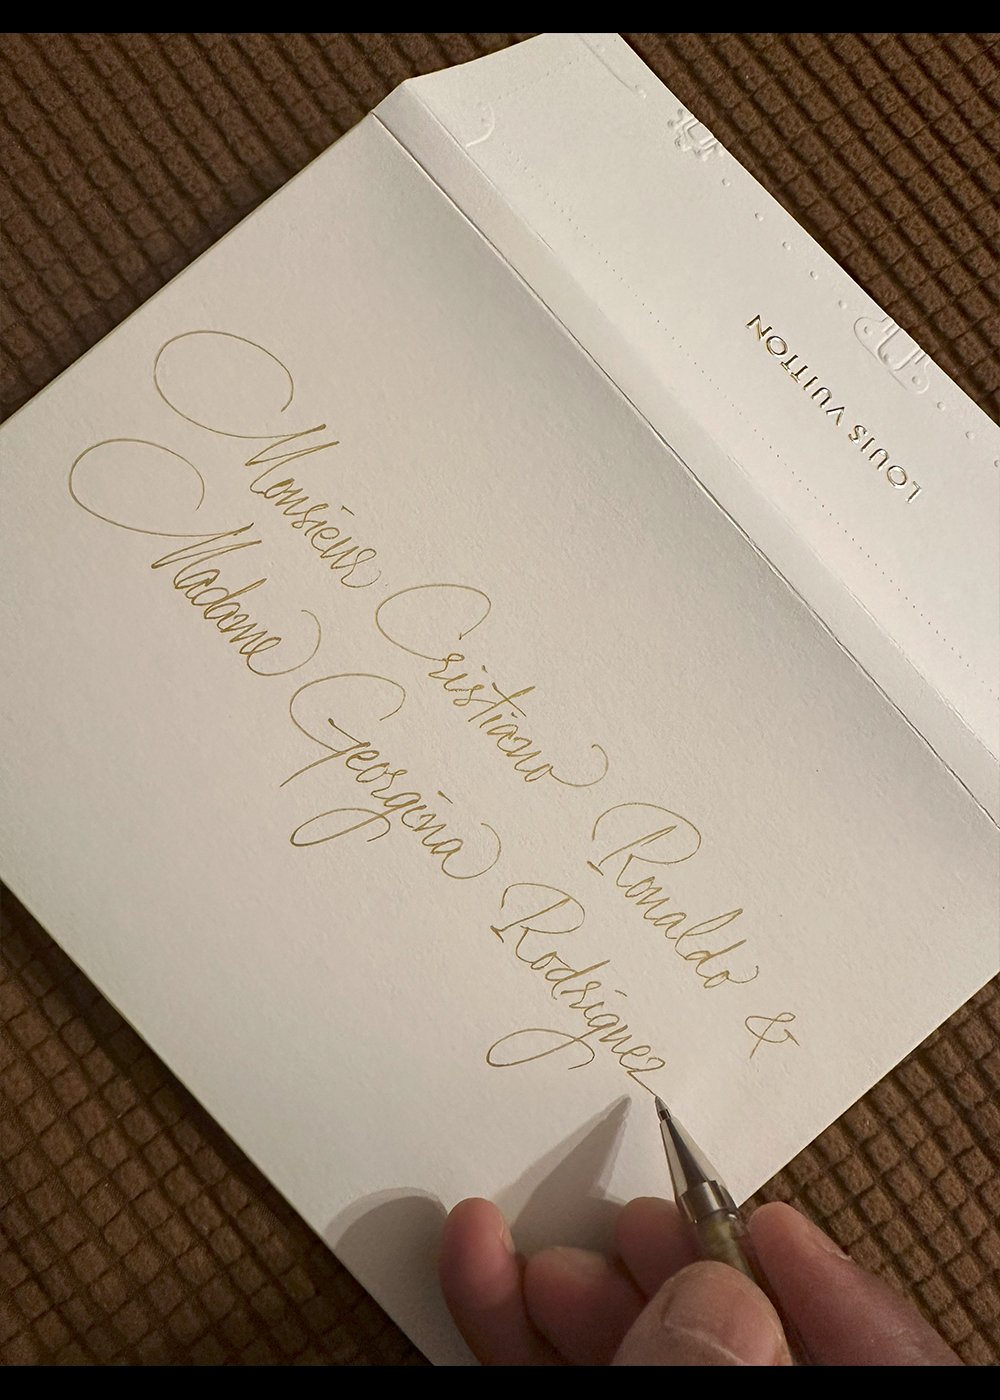 LOUIS VUITTON
Monsieur Cristiano Ronaldo &
Madame Georgina Rodríguez